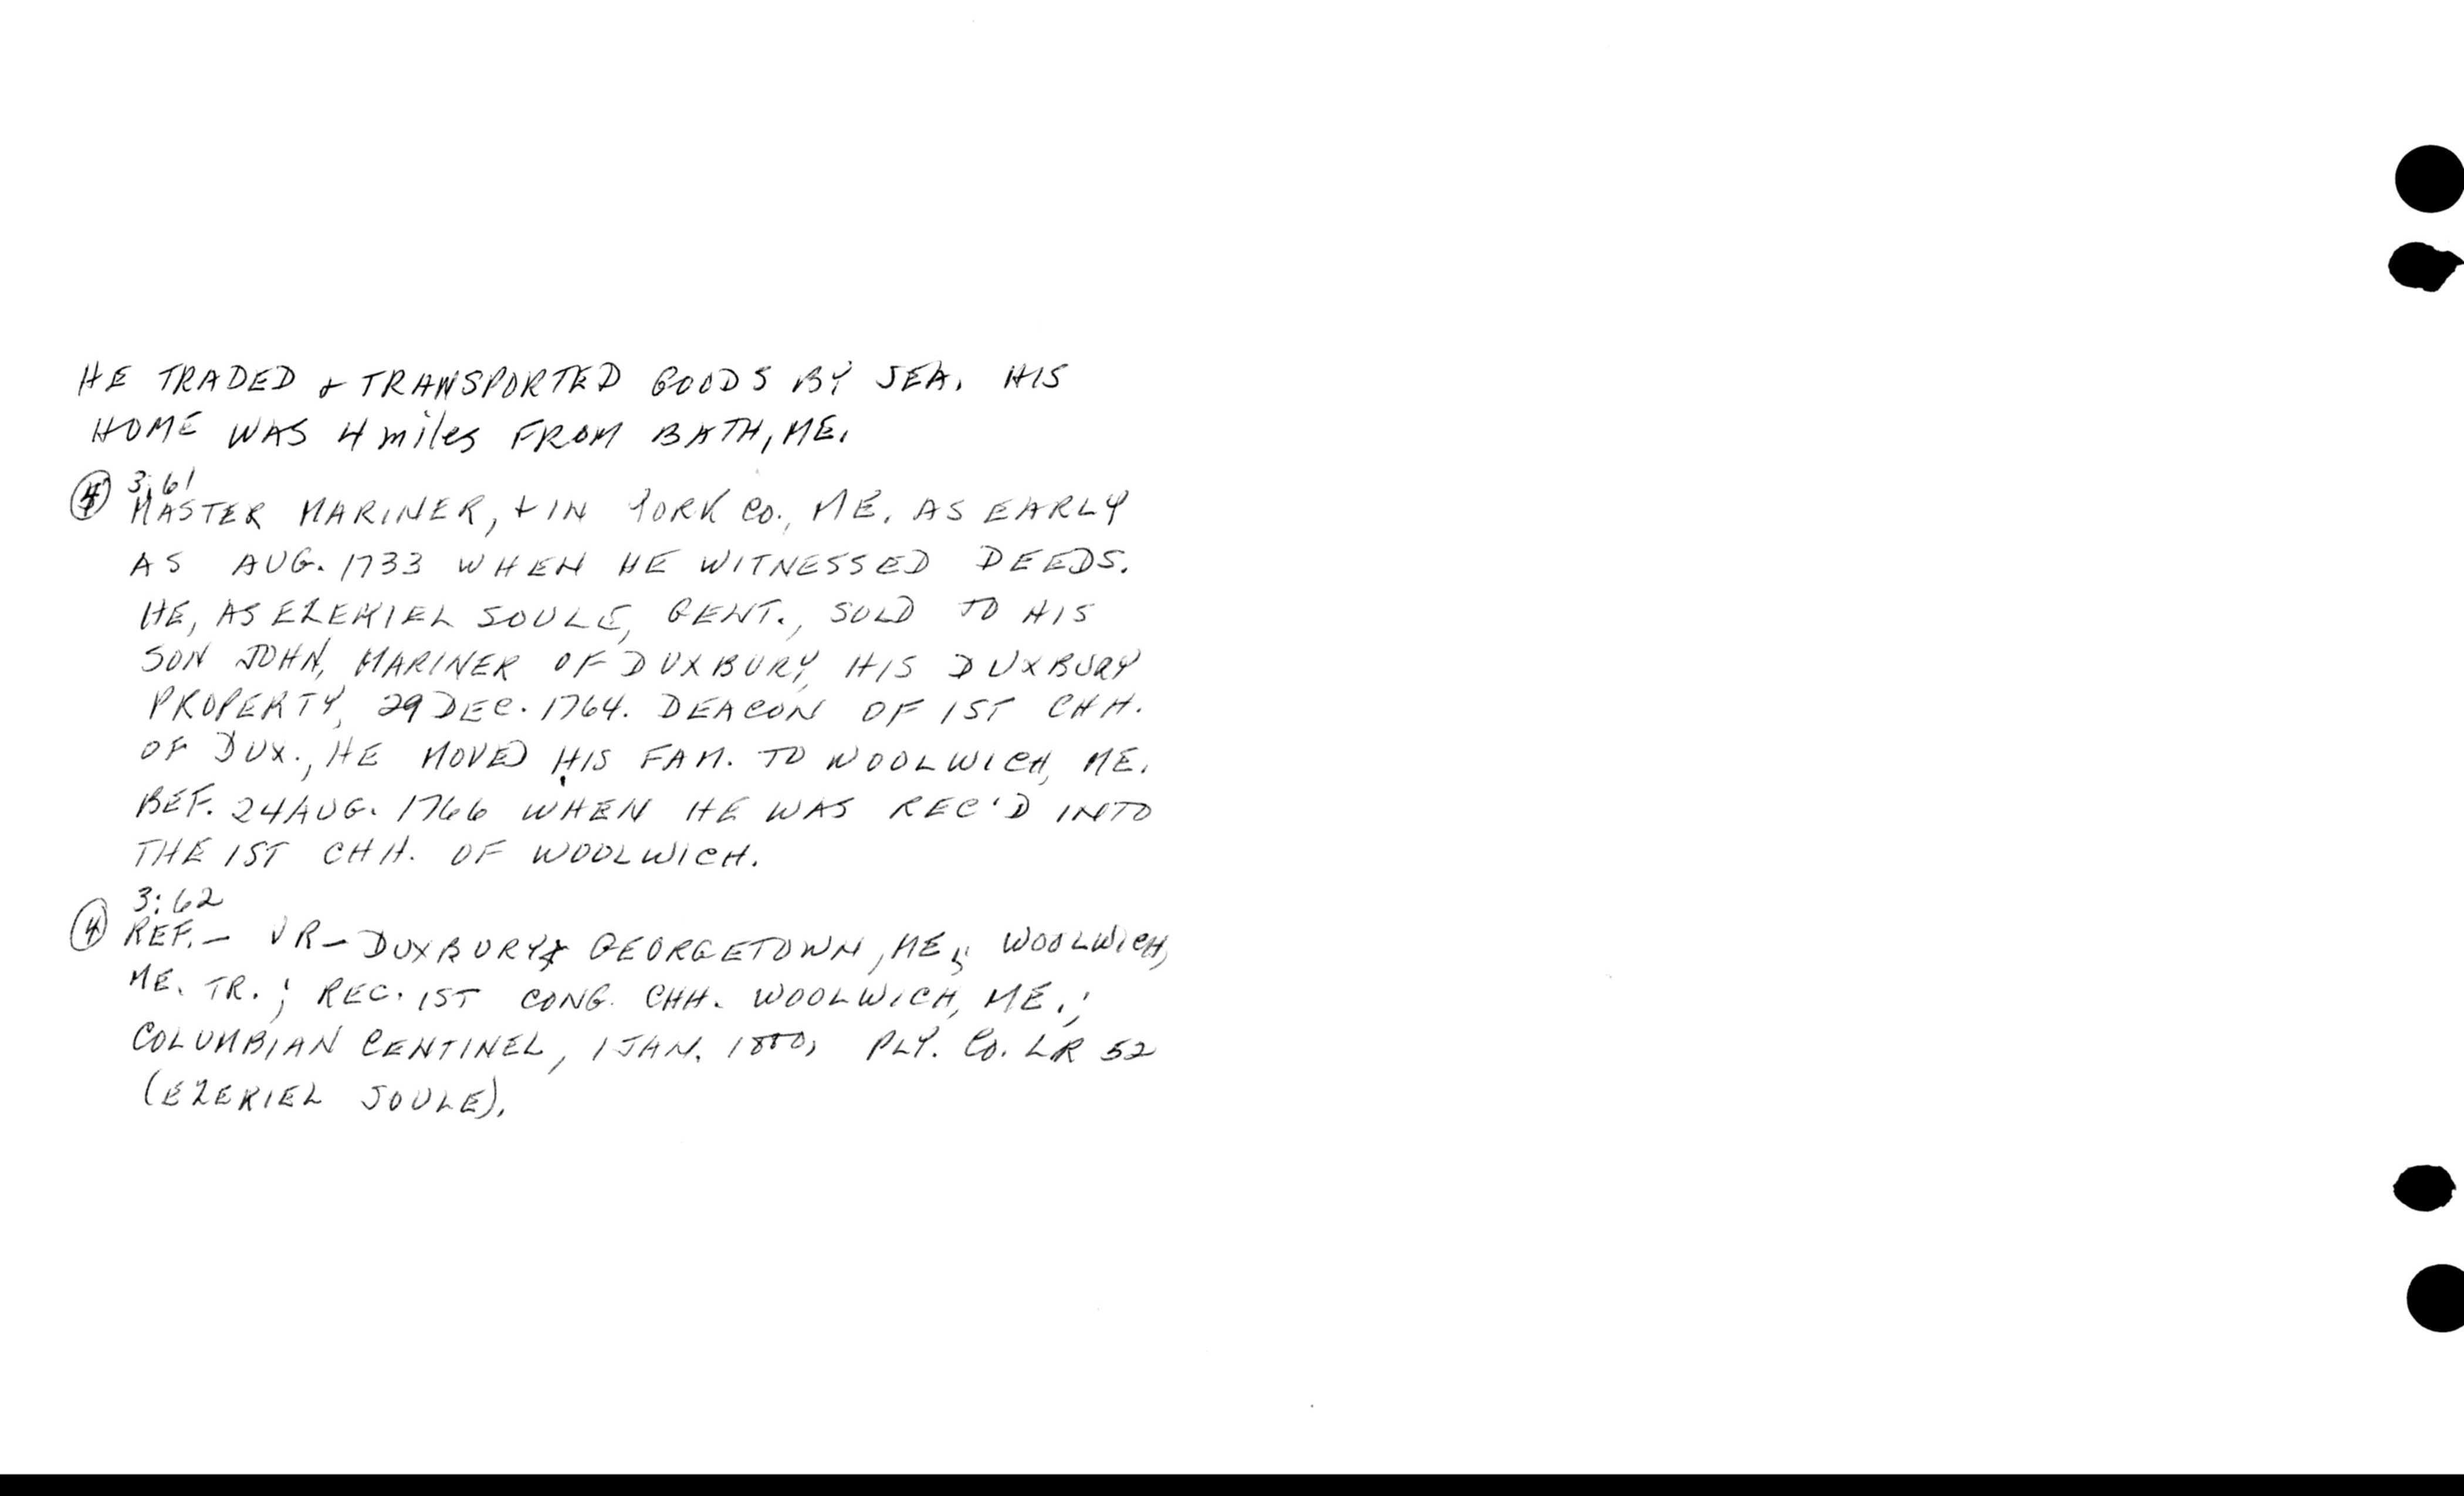 HE TRADED & TRANSPORTED GOODS BY SEA. HIS
HOME WAS 4 miles FROM BATH, ME.
④ 3:61
MASTER MARINER, & IN YORK CO., ME. AS EARLY
AS AUG. 1733 WHEN HE WITNESSED DEEDS.
HE, AS EZEKIEL SOULE, GENT., SOLD TO HIS
SON JOHN, MARINER OF DUXBURY, HIS DUXBURY
PROPERTY, 29 DEC. 1764. DEACON OF 1ST CHH.
OF DUX., HE MOVED HIS FAM. TO WOOLWICH, ME.
BEF. 24 AUG. 1766 WHEN HE WAS REC'D INTO
THE 1ST CHH. OF WOOLWICH.
3:62
④ REF. — VR — DUXBURY & GEORGETOWN, ME; WOOLWICH,
ME. TR.; REC. 1ST CONG. CHH. WOOLWICH, ME.;
COLUMBIAN CENTINEL, 1 JAN. 1800; PLY. CO. LR 52
(EZEKIEL SOULE).